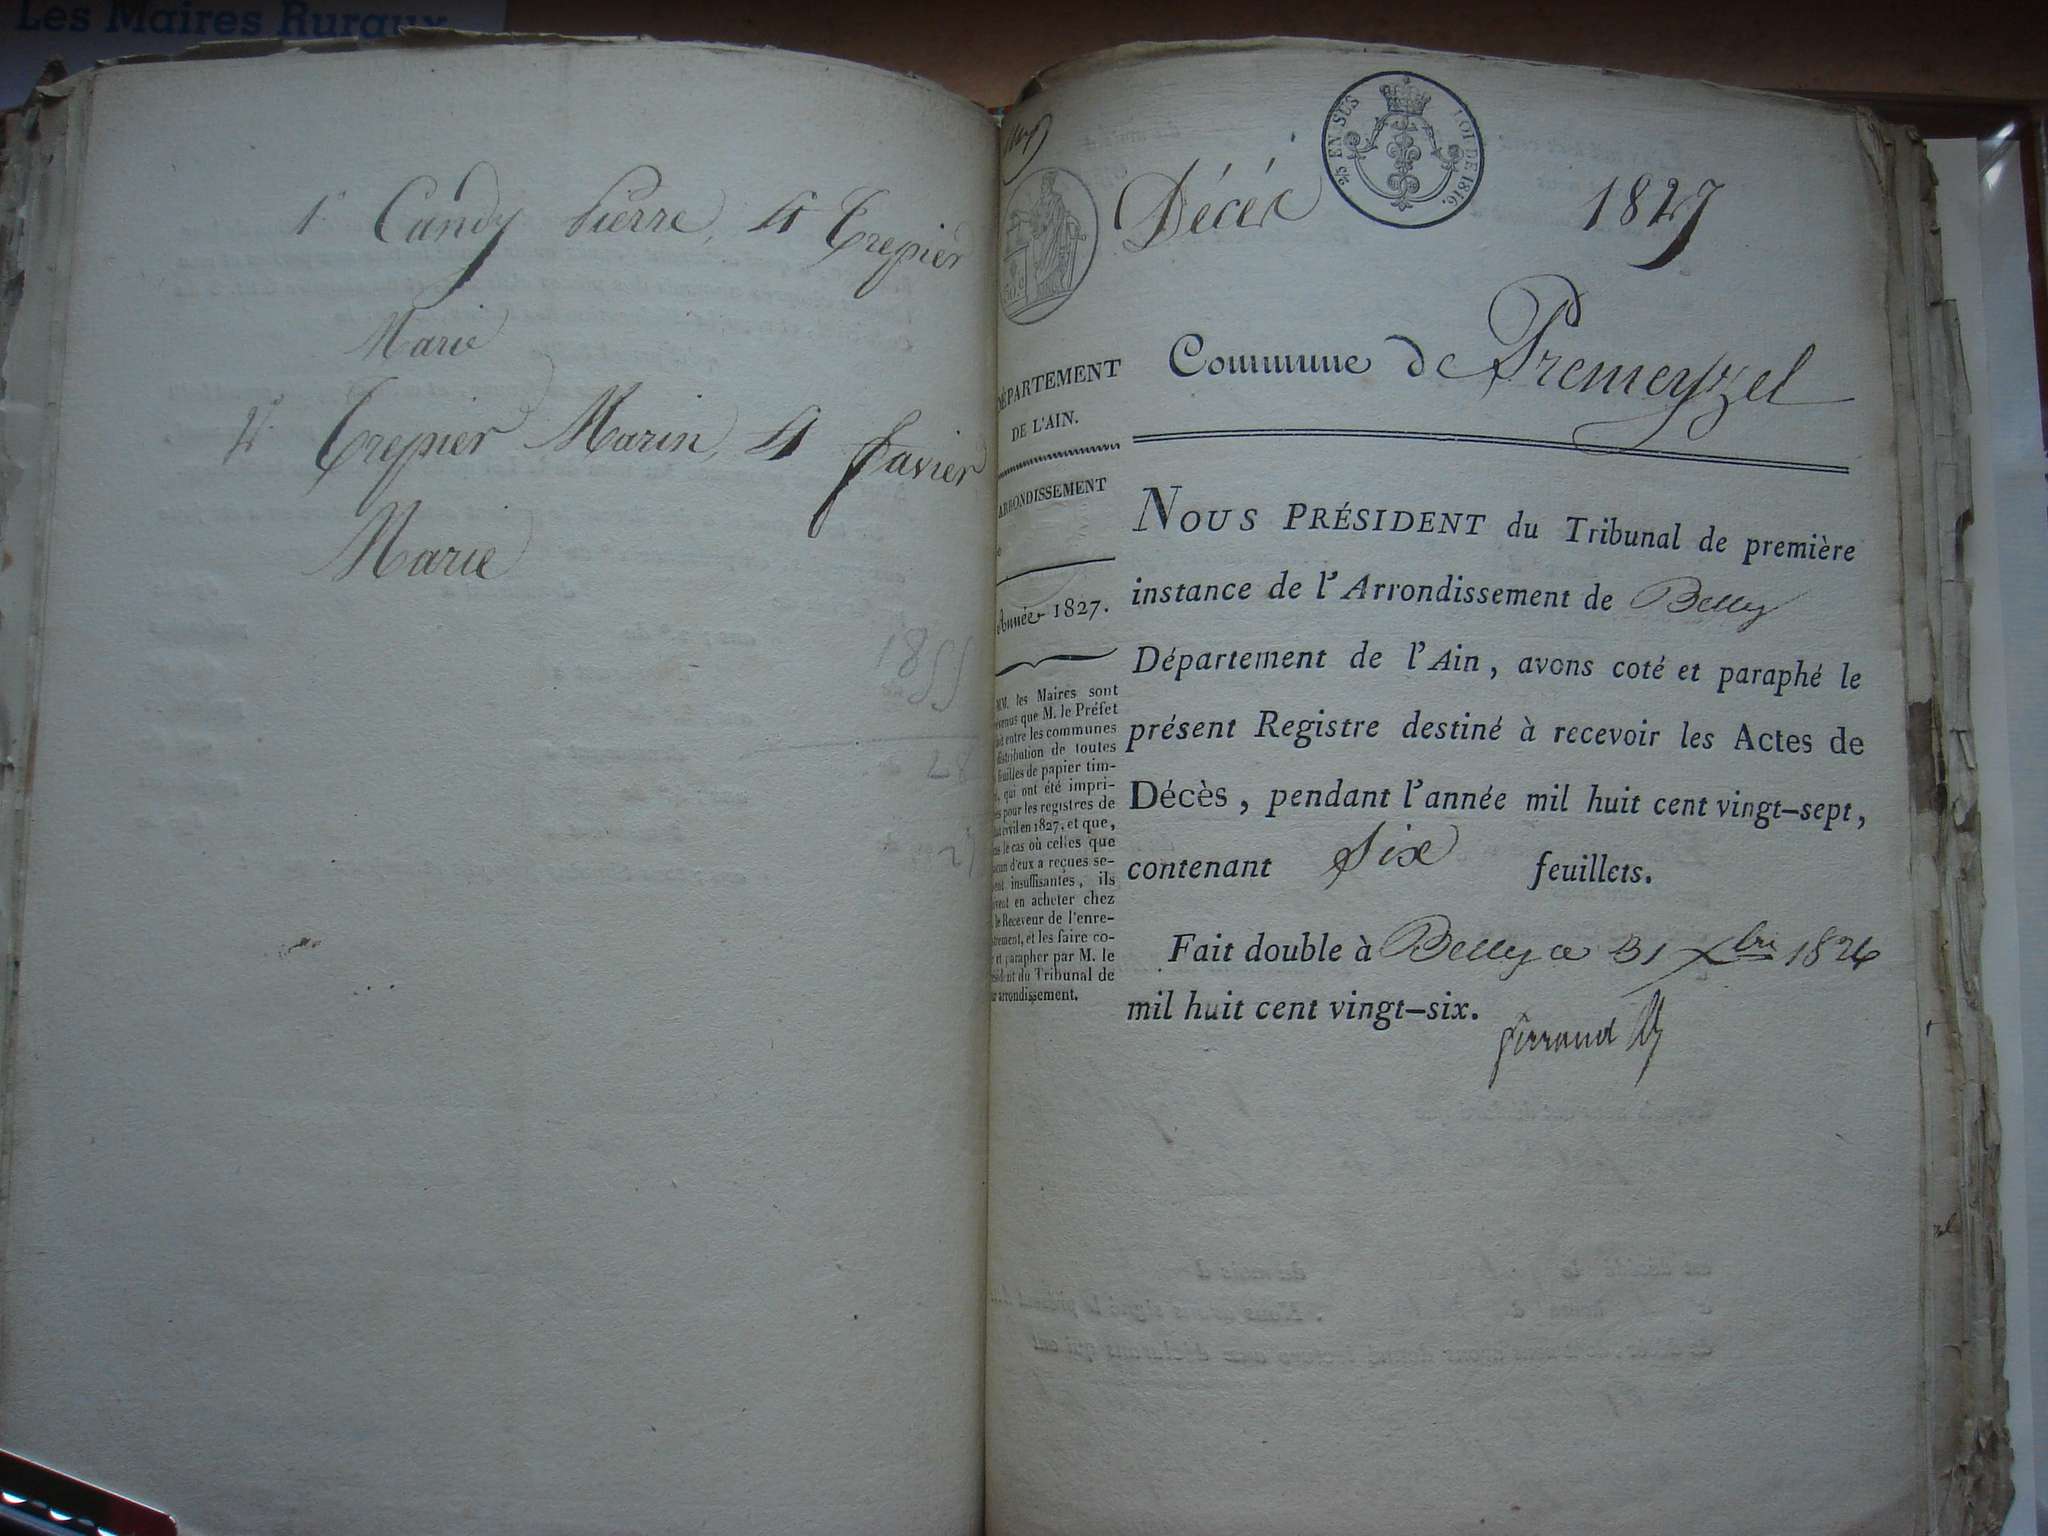 Les Maires Ruraux
1° Candy Pierre, & Trepier
Marie
2° Trepier Marin, & Favier
Marie
1855
28
25 EN SUS
LOI DE 1816.
Décès
1827
Commune de Premeyzel
DÉPARTEMENT
DE L'AIN.
ARRONDISSEMENT
Année 1827.
MM. les Maires sont
que M. le Préfet
entre les communes
distribution de toutes
feuilles de papier tim-
qui ont été impri-
pour les registres de
civil en 1827, et que,
le cas où celles que
d'eux a reçues se-
insuffisantes, ils
en acheter chez
le Receveur de l'enre-
et les faire co-
et parapher par M. le
du Tribunal de
arrondissement.
NOUS PRÉSIDENT du Tribunal de première
instance de l'Arrondissement de Belley
Département de l'Ain, avons coté et paraphé le
présent Registre destiné à recevoir les Actes de
Décès, pendant l'année mil huit cent vingt-sept,
contenant Six feuillets.
Fait double à Belley ce 31 Xbre 1826
mil huit cent vingt-six.